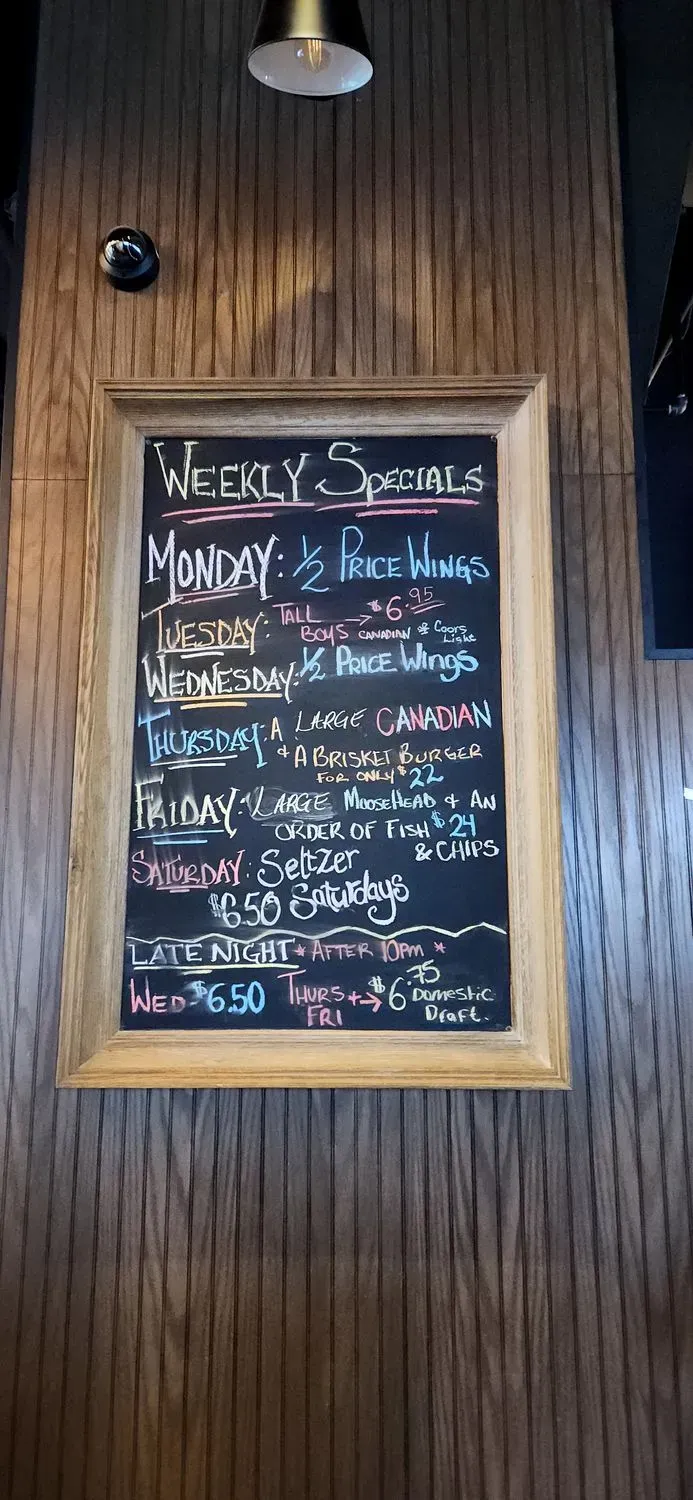 WEEKLY SPECIALS
MONDAY: 1/2 PRICE WINGS
TUESDAY: TALL BOYS → $6.95 CANADIAN & Coors Light
WEDNESDAY: 1/2 PRICE WINGS
THURSDAY: A LARGE CANADIAN
& A BRISKET BURGER
FOR ONLY $22
FRIDAY: LARGE MOOSEHEAD & AN
ORDER OF FISH $24
& CHIPS
SATURDAY: Seltzer
$6.50 Saturdays
LATE NIGHT * AFTER 10PM *
WED - $6.50 THURS + FRI → $6.75 Domestic Draft.